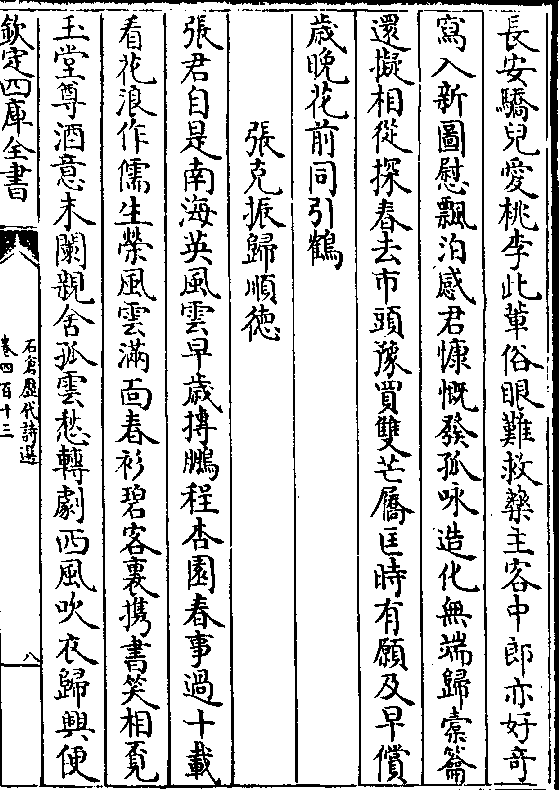 長安驕兒愛桃李此軰俗眼難救藥主客中郎亦好奇
寫入新圖慰飄泊感君慷慨發孤咏造化無端歸橐籥
還擬相從探春去市頭豫買雙芒屩匡時有願及早償
歲晚花前同引鶴
張克振歸順德
張君自是南海英風雲早歲摶鵬程杏園春事過十載
看花浪作儒生榮風雲滿面春衫碧客裏携書笑相覔
玉堂尊酒意未闌親舍孤雲愁轉劇西風吹衣歸興便
欽定四庫全書
石倉歷代詩選
卷四百十三
八